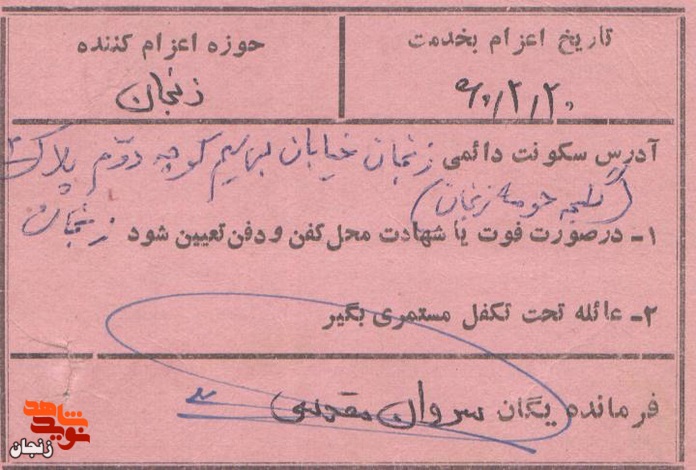 تاریخ اعزام بخدمت
حوزه اعزام کننده
۶۰/۲/۲۰
زنجان
آدرس سکونت دائمی زنجان خیابان کوچه دوم پلاک
حومه زنجان)
۱- درصورت فوت یا شهادت محل کفن و دفن تعیین شود زنجان
۲- عائله تحت تکفل مستمری بگیر
فرمانده یگان سروان مقدسی
نوید شاهد
زنجان